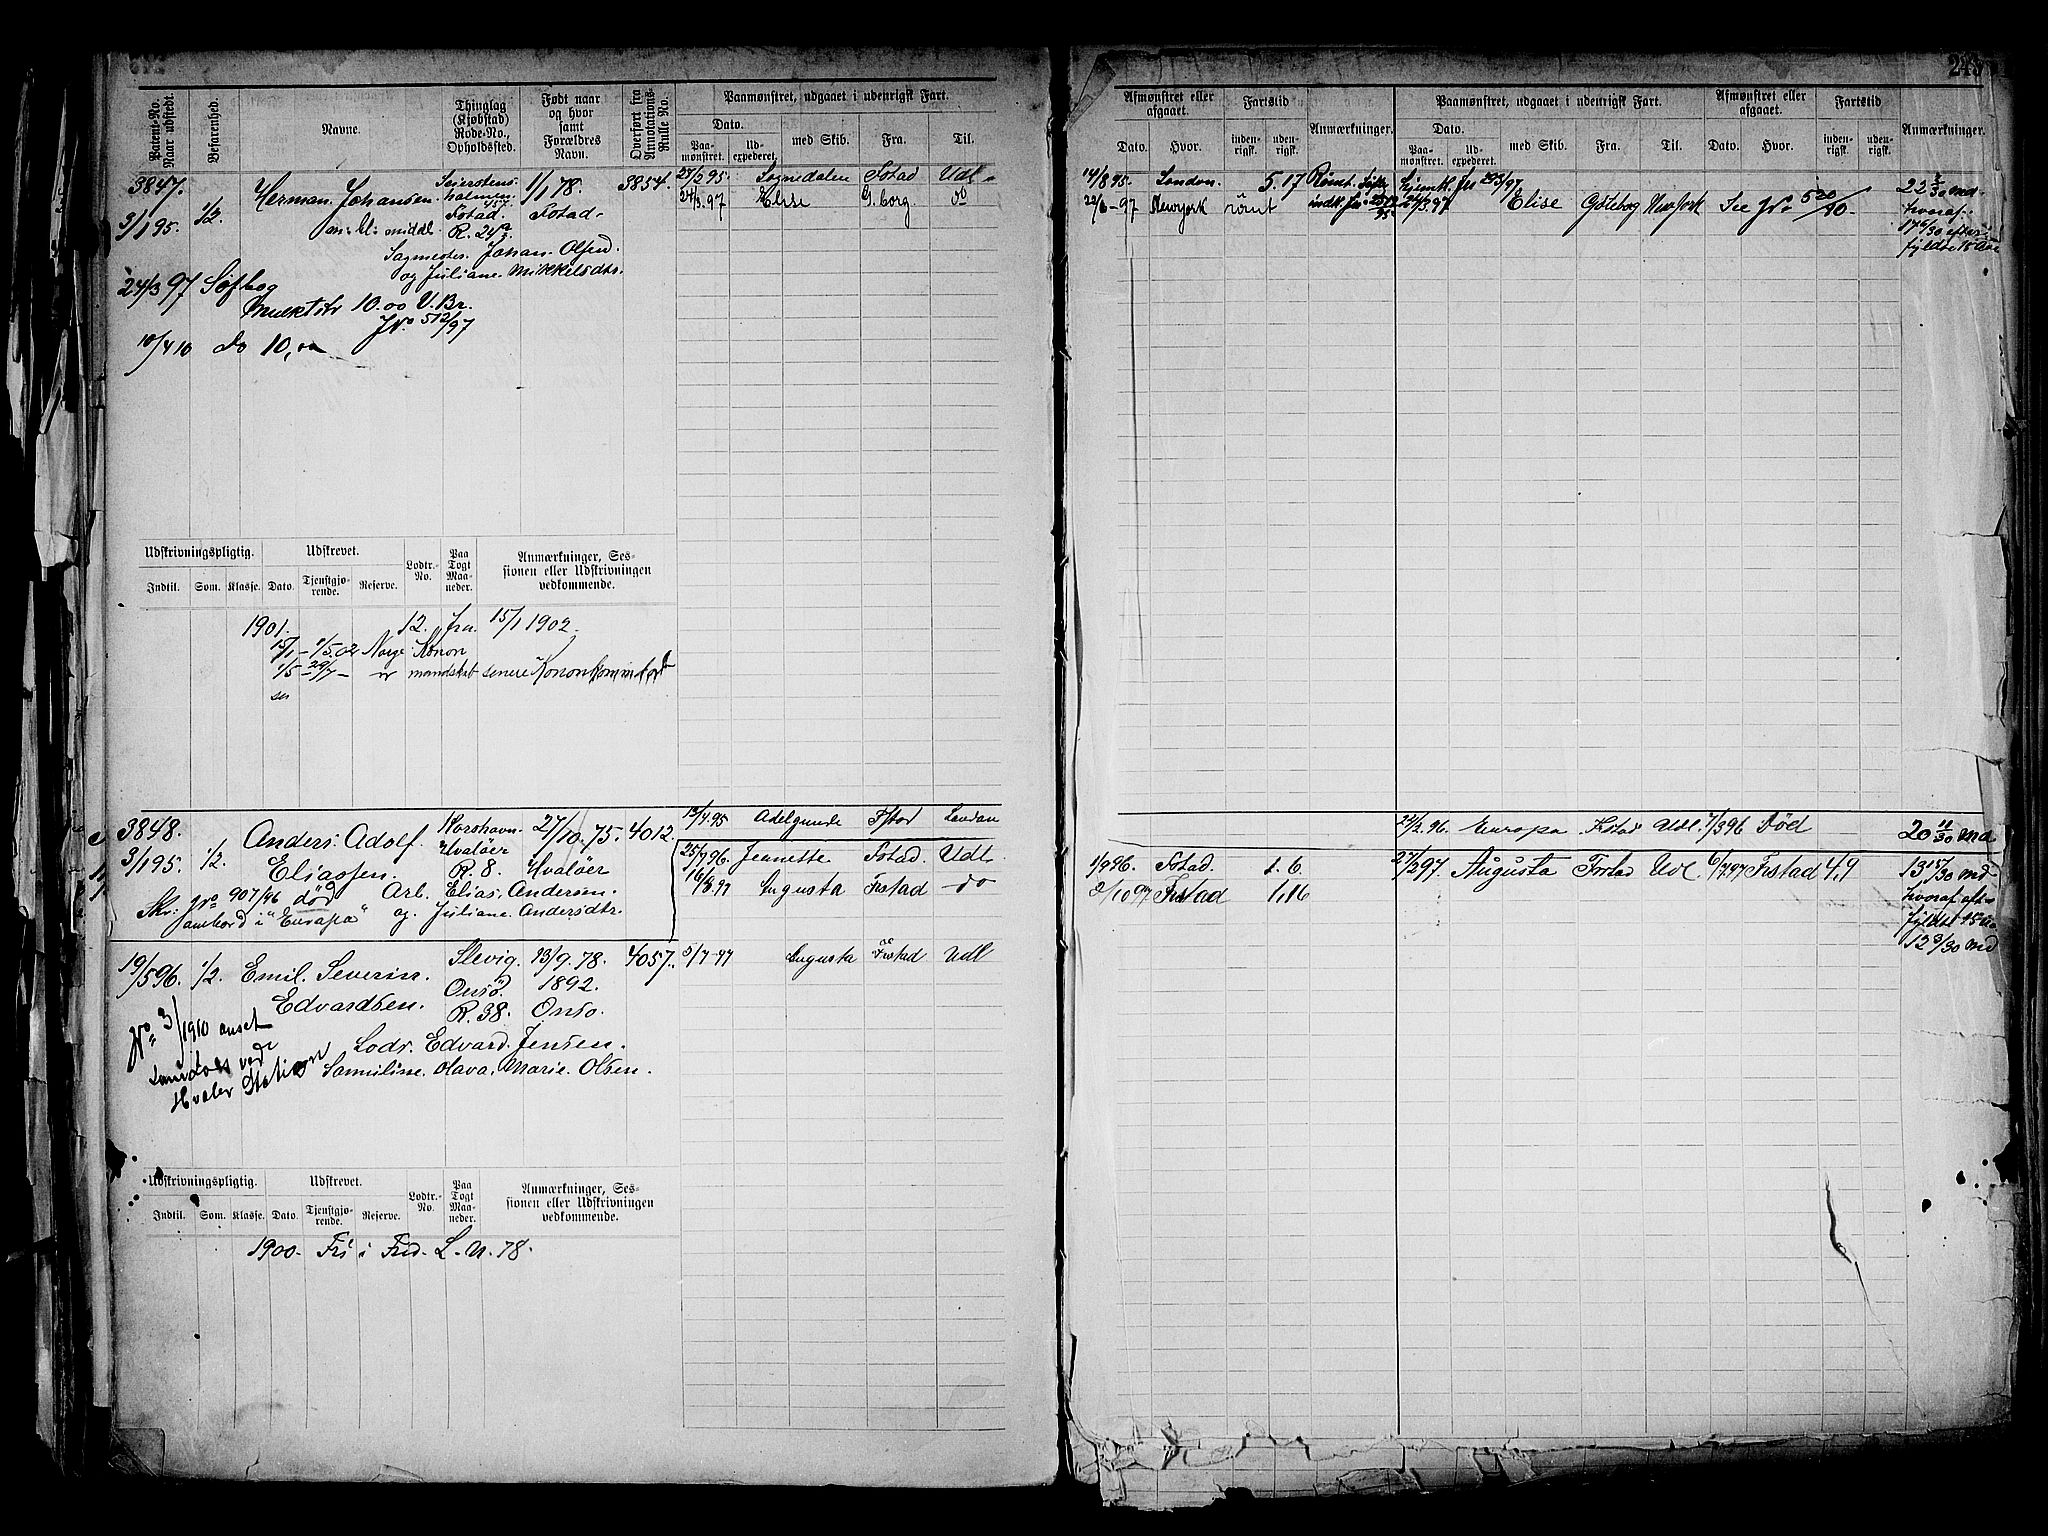 243
Patent-No. Naar udstedt.
Befarenhed.
Navne.
Thinglag (Kjøbstad) Rode-No., Opholdssted.
Født naar og hvor samt Forældres Navn.
Overført fra Annotations-Rulle No.
Paamønstret, udgaaet i udenrigsk Fart.
Dato.
Paamønstret. Udexpederet.
med Skib. Fra. Til.
Afmønstret eller afgaaet.
Dato. Hvor.
Fartstid
indenrigsk. udenrigsk.
Anmærkninger.
Paamønstret, udgaaet i udenrigsk Fart.
Dato.
Paamønstret. Udexpederet.
med Skib. Fra. Til.
Afmønstret eller afgaaet.
Dato. Hvor.
Fartstid
indenrigsk. udenrigsk.
Anmærkninger.
3847.
3/1 95. 1/2.
Herman. Johansen.
Fstad.
R. 24
1/1 78.
Fstad.
3854.
Sagmester. Johan. Olsen.
og Juliane. Mikkelsdtr.
24/3 97 Søfbog
Mulkt kr 10.00 U. Br.
No. 512/97
10/4 10 do 10,00
27/2 95. Sognedalen Fstad Udl.
24/3. 97 Elise G.borg do
14/8 95. London. 5.17 Rømt.
22/6-97 Newyork rømt
24/3.97 Elise Göteborg Newyork See No. 520/90.
22 2/30 md.
hvoraf
17 5/30 efter
fyldte 15 Aar
Udskrivningspligtig. Udskrevet. Lodtr.-No. Paa Togt Maaneder. Anmærkninger, Sessionen eller Udskrivningen vedkommende.
Indtil. Som. Klasse. Dato. Tjenstgjørende. Reserve.
1901. 12. fra. 15/1 1902.
15/1 - 1/5.02 Norge Kanon
1/5 - 29/7 - mandskab senere Kanonkommandør
3848.
3/1 95. 1/2.
Anders. Adolf.
Eliassen.
Korshavn.
Hvaløer
R. 8.
27/10. 75.
Hvaløer
4012.
Arb. Elias. Andersen.
og. Juliane. Andersdtr.
Skr: No 907/96 død
ombord i "Europa"
13/4.95 Adelgunde Fstad London
25/7 96. Jeanette Fstad. Udl.
16/3.97 Augusta Frstad do
1/9 96. Fstad. 1. 6.
2/10 97 Frstad 1,16
24/2.96. Europa Fstad Udl. 7/3 96 Død
20 11/30 md
27/2 97 Augusta Frstad Udl 6/7 97 Frstad 4,9
13 15/30 md
hvoraf eft.
fyldte 15 Aar
12 3/30 md
19/5 96. 1/2.
Emil. Severin.
Edvardsen.
Slevig.
Onsö.
R. 38.
13/9. 78.
1892.
Onsö.
4057.
Lodr. Edvard. Jensen.
Samuline. Olava. Marie. Olsen.
No 3/1910 ansat
Lumdods ved
Hvaler Station
5/7-97 Augusta Frstad Udl
Udskrivningspligtig. Udskrevet. Lodtr.-No. Paa Togt Maaneder. Anmærkninger, Sessionen eller Udskrivningen vedkommende.
Indtil. Som. Klasse. Dato. Tjenstgjørende. Reserve.
1900. Fri i Fred. L. N. 78.